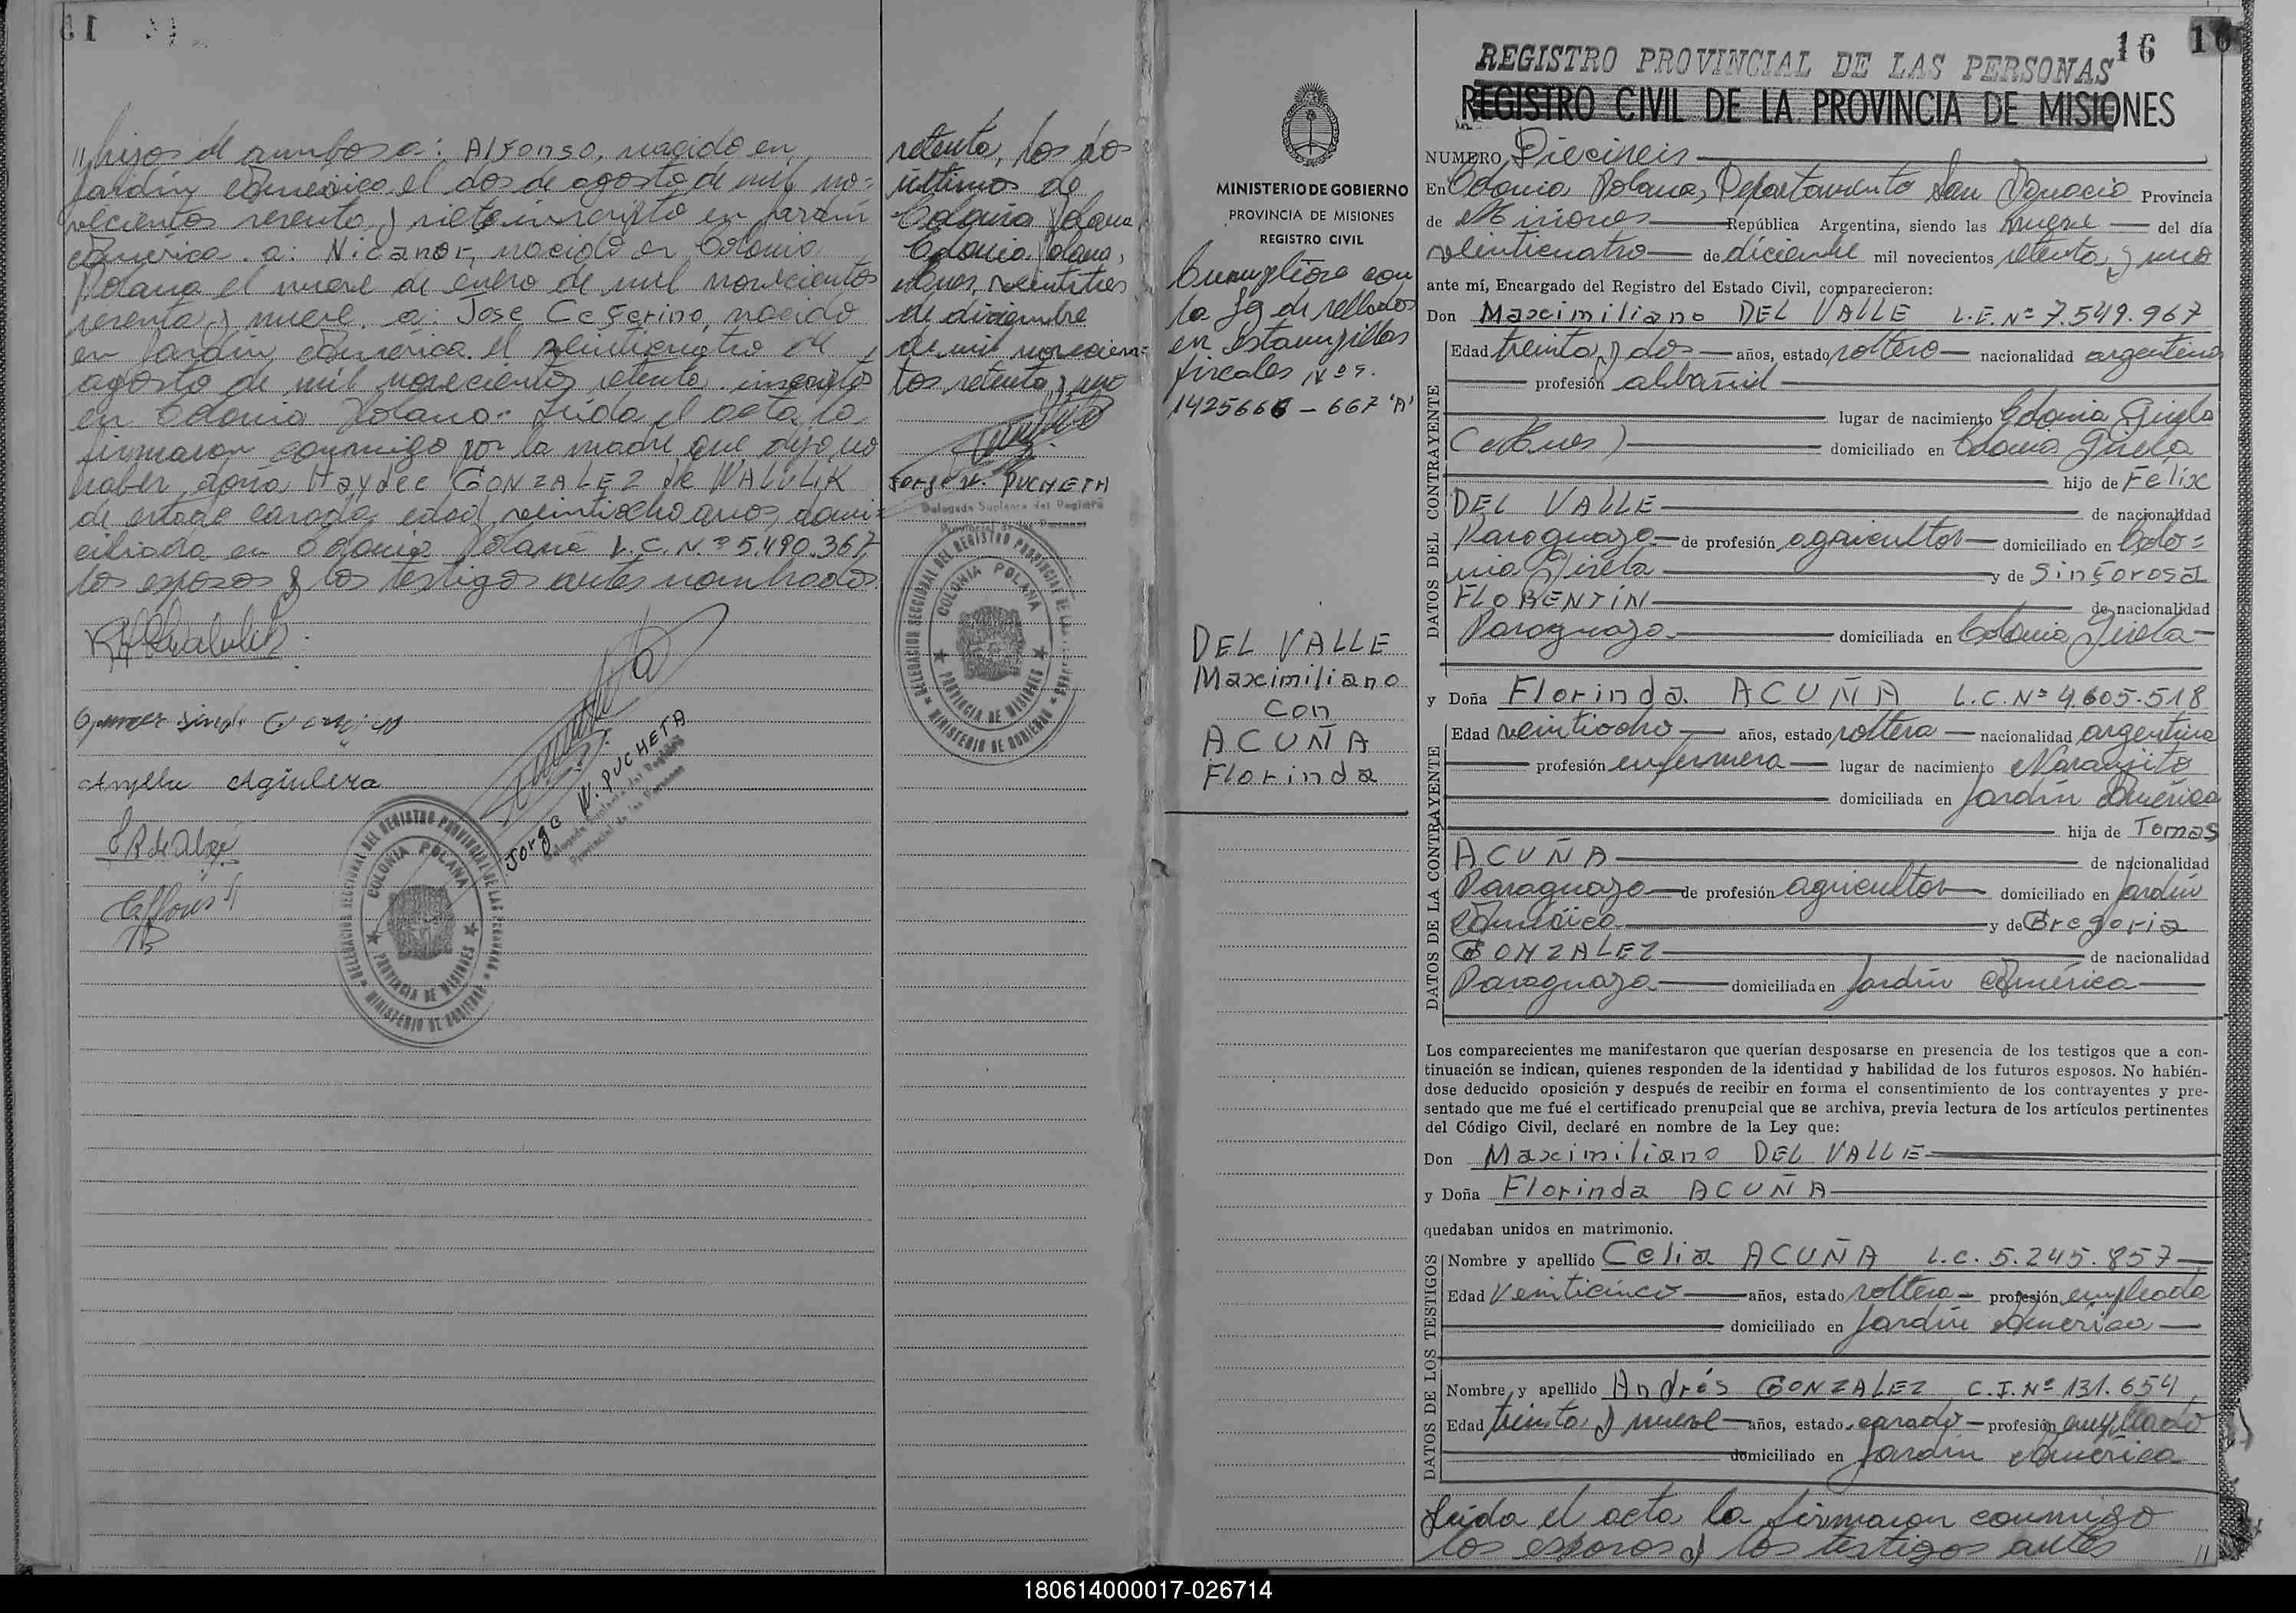 "hijos de ambos a: Alfonso, nacido en
Jardín América el dos de agosto de mil no=
vecientos sesenta y siete inscripto en Jardín
América. a: Nicanor, nacido en Colonia
Polana el nueve de enero de mil novecientos
sesenta y nueve. a: Jose Ceferino, nacido
en Jardín América el veinticuatro de
agosto de mil novecientos setenta inscripto
en Colonia Polana. Leída el acta la
firmaron conmigo por la madre que dijo no
saber, doña Haydee GONZALEZ de WALULIK
de estado casada, edad veintiocho años, domi=
ciliada en Colonia Polana L.C. Nº 5.490.367,
los esposos y los testigos antes nombrados.
Aguilera
Jorge N. PUCHETA
Delegado Suplente del Registro
Provincial de las Personas
DELEGACION SECCIONAL DEL REGISTRO PROVINCIAL DE LAS PERSONAS
COLONIA POLANA
PROVINCIA DE MISIONES
MINISTERIO DE GOBIERNO
setenta, los dos
últimos de
Colonia Polana
Colonia Polana,
Mnes, veintitres
de diciembre
de mil novecien=
tos setenta y uno
Jorge N. PUCHETA
Delegado Suplente del Registro
Provincial de las Personas
DELEGACION SECCIONAL DEL REGISTRO PROVINCIAL DE LAS PERSONAS
COLONIA POLANA
PROVINCIA DE MISIONES
MINISTERIO DE GOBIERNO
MINISTERIO DE GOBIERNO
PROVINCIA DE MISIONES
REGISTRO CIVIL
Cumpliose con
la Lg de sellados
en estampillas
fiscales Nºs.
1425666 - 667 'A'
DEL VALLE
Maximiliano
con
ACUÑA
Florinda
16 16
REGISTRO PROVINCIAL DE LAS PERSONAS
REGISTRO CIVIL DE LA PROVINCIA DE MISIONES
NUMERO Dieciseis
En Colonia Polana, Departamento San Ignacio Provincia
de Misiones República Argentina, siendo las nueve del día
veinticuatro de diciembre mil novecientos setenta y uno
ante mí, Encargado del Registro del Estado Civil, comparecieron:
Don Maximiliano DEL VALLE L.E. Nº 7.549.967
DATOS DEL CONTRAYENTE
Edad treinta y dos años, estado soltero nacionalidad argentina
profesión albañil
lugar de nacimiento Colonia Gisela
(Mnes) domiciliado en Colonia Gisela
hijo de Felix
DEL VALLE de nacionalidad
Paraguaya de profesión agricultor domiciliado en Colo=
nia Gisela y de Sinforosa
FLORENTIN de nacionalidad
Paraguaya domiciliada en Colonia Gisela
y Doña Florinda ACUÑA L.C. Nº 4.605.518
DATOS DE LA CONTRAYENTE
Edad veintiocho años, estado soltera nacionalidad argentina
profesión enfermera lugar de nacimiento Naranjito
domiciliada en Jardín América
hija de Tomas
ACUÑA de nacionalidad
Paraguaya de profesión agricultor domiciliado en Jardín
América y de Gregoria
GONZALEZ de nacionalidad
Paraguaya domiciliada en Jardín América
Los comparecientes me manifestaron que querían desposarse en presencia de los testigos que a con-
tinuación se indican, quienes responden de la identidad y habilidad de los futuros esposos. No habién-
dose deducido oposición y después de recibir en forma el consentimiento de los contrayentes y pre-
sentado que me fué el certificado prenupcial que se archiva, previa lectura de los artículos pertinentes
del Código Civil, declaré en nombre de la Ley que:
Don Maximiliano DEL VALLE
y Doña Florinda ACUÑA
quedaban unidos en matrimonio.
DATOS DE LOS TESTIGOS
Nombre y apellido Celia ACUÑA L.C. 5.245.857
Edad Veinticinco años, estado soltera profesión empleada
domiciliado en Jardín América
Nombre y apellido Andrés GONZALEZ C.I. Nº 131.654
Edad treinta y nueve años, estado casado profesión empleado
domiciliado en Jardín América
Leída el acta la firmaron conmigo
los esposos y los testigos antes "
180614000017-026714